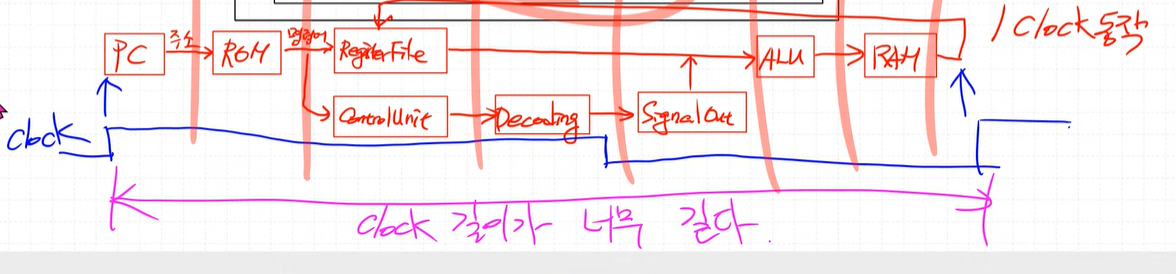 1 Clock동작
PC 주소 ROM 명령어 RegisterFile ALU RAM
ControlUnit Decoding SignalOut
clock
clock 길이가 너무 길다.